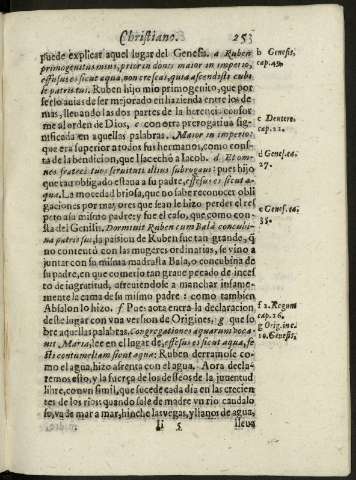 Christiano. 253
puede explicar aquel lugar del Genesis. a Ruben
primogenitus meus, prior in donis maior in imperio,
effusus es sicut aqua, non crescas, quia ascendisti cubi
le patris tui. Ruben hijo mio primogenito, que por
serlo auias de ser mejorado en hazienda entre los de
mas, lleuando las dos partes de la herencia confor
me al orden de Dios, c con otra prerogatiua sig-
nificada en aquellas palabras. Maior in imperio:
que era superior a todos sus hermanos, como cons-
ta de la bendicion, que Isac echò a Iacob. d Et om-
nes fratres tuos seruituti illius subiugaui: pues hijo
que tan obligado estaua a su padre, effusus es sicut a-
qua. La mocedad briosa, que no sabe reconocer obli
gaciones por mayores que sean le hizo perder el res
peto a su mismo padre; y fue el caso, que como cons-
ta del Genesis. Dormiuit Ruben cum Bala concubi-
na patris sui, la passion de Ruben fue tan grande, q̃
no contentò con las mugeres ordinarias, se vino a
juntar con su misma madrasta Bala, o concubina de
su padre, en que cometio tan graue pecado de inces
to de ingratitud, atreuiendose a manchar infame-
mente la cama de su mismo padre: como tambien
Absalon lo hizo. f Pues aora entra la declaracion
deste lugar con vna version de Origines: g que so
bre aquellas palabras. Congregationes aquarum voca-
uit Maria, lee en el lugar de, effusus es sicut aqua, fe
cisti contumeliam sicut aqua: Ruben derramose como
el agua, hizo afrenta con el agua. Aora decla-
remos esto, y la fuerça de los desseos de la juuentud
libre, con vn simil, que sucede cada dia en las crecien
tes de los rios: quando sale de madre vn rio caudalo
so, va de mar a mar, hinche las vegas, y llanos de agua,
Ii 5 lleua
b Genesis,
cap. 49.
c Deutero.
cap. 21.
d Genes. ca.
27.
e Genes. ca.
35.
f 2. Regum
cap. 16.
g Orig. in c.
1. Genesis.